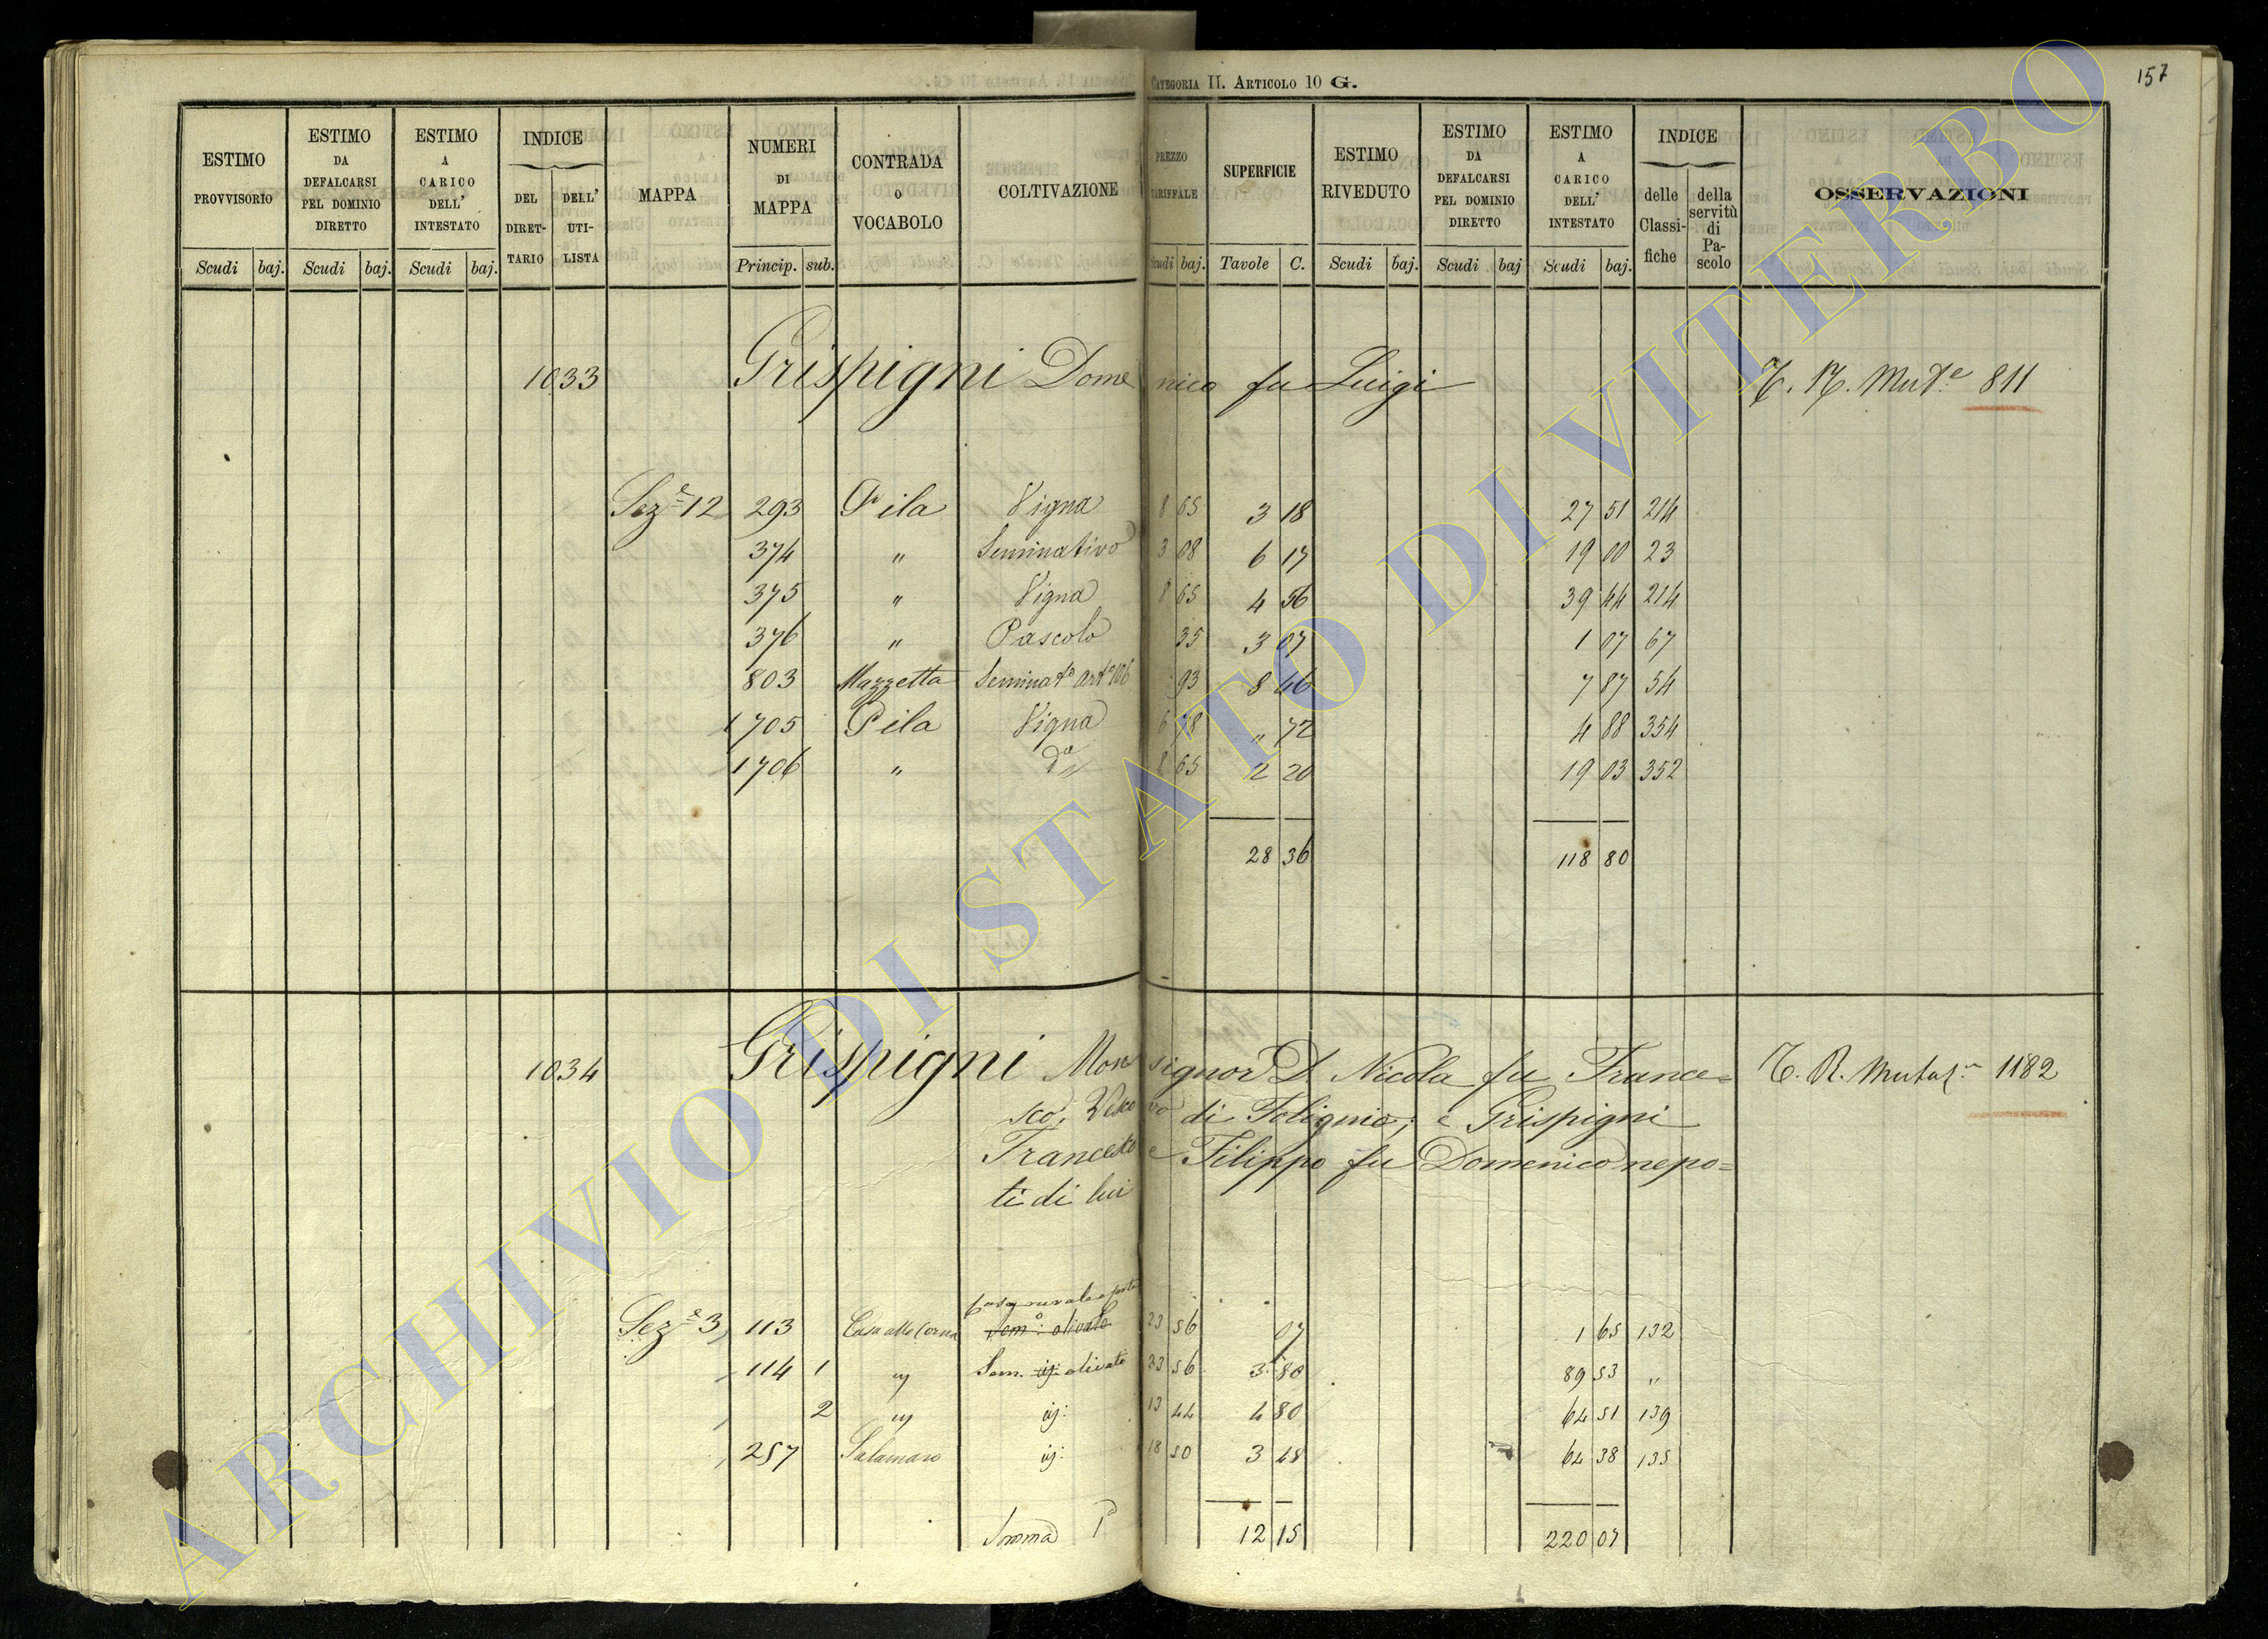 CATEGORIA II. ARTICOLO 10 G.
157
ESTIMO PROVVISORIO | ESTIMO DA DEFALCARSI PEL DOMINIO DIRETTO | ESTIMO A CARICO DELL' INTESTATO | INDICE DEL DIRET-TARIO | DELL' UTI-LISTA | MAPPA | NUMERI DI MAPPA | CONTRADA O VOCABOLO | COLTIVAZIONE | PREZZO TARIFFALE | SUPERFICIE | ESTIMO RIVEDUTO | ESTIMO DA DEFALCARSI PEL DOMINIO DIRETTO | ESTIMO A CARICO DELL' INTESTATO | INDICE delle Classi-fiche | della servitù di Pa-scolo | OSSERVAZIONI
Scudi baj. Scudi baj. Scudi baj. Princip. sub. Scudi baj. Tavole C. Scudi baj. Scudi baj Scudi baj.
1033 Grispigni Domenico fu Luigi T. R. Mut.e 811
Sez.e 12 293 Pila Vigna 8 65 3 18 27 51 214
374 " Seminativo 3 08 6 17 19 00 23
375 " Vigna 8 65 4 56 39 44 214
376 " Pascolo 35 3 07 1 07 67
803 Mazzetta Seminat.o art.o 106 93 8 46 7 87 54
1705 Pila Vigna 6 78 " 72 4 88 354
1706 " d.a 8 65 2 20 19 03 352
28 36 118 80
1034 Grispigni Monsignor D. Nicola fu France= T. R. Mutaz.n 1182
sco, Vescovo di Foligno; e Grispigni
Francesco e Filippo fu Domenico nepo=
ti di lui
Casa rurale
Sez.e 3 113 Sem.o olivato 23 56 07 1 65 132
114 1 " Sem. olivato 23 56 3 80 89 53 "
2 " id: 13 44 4 80 64 51 139
257 Salamaro id: 18 50 3 48 64 38 135
Somma 12 15 220 07
ARCHIVIO DI STATO DI VITERBO